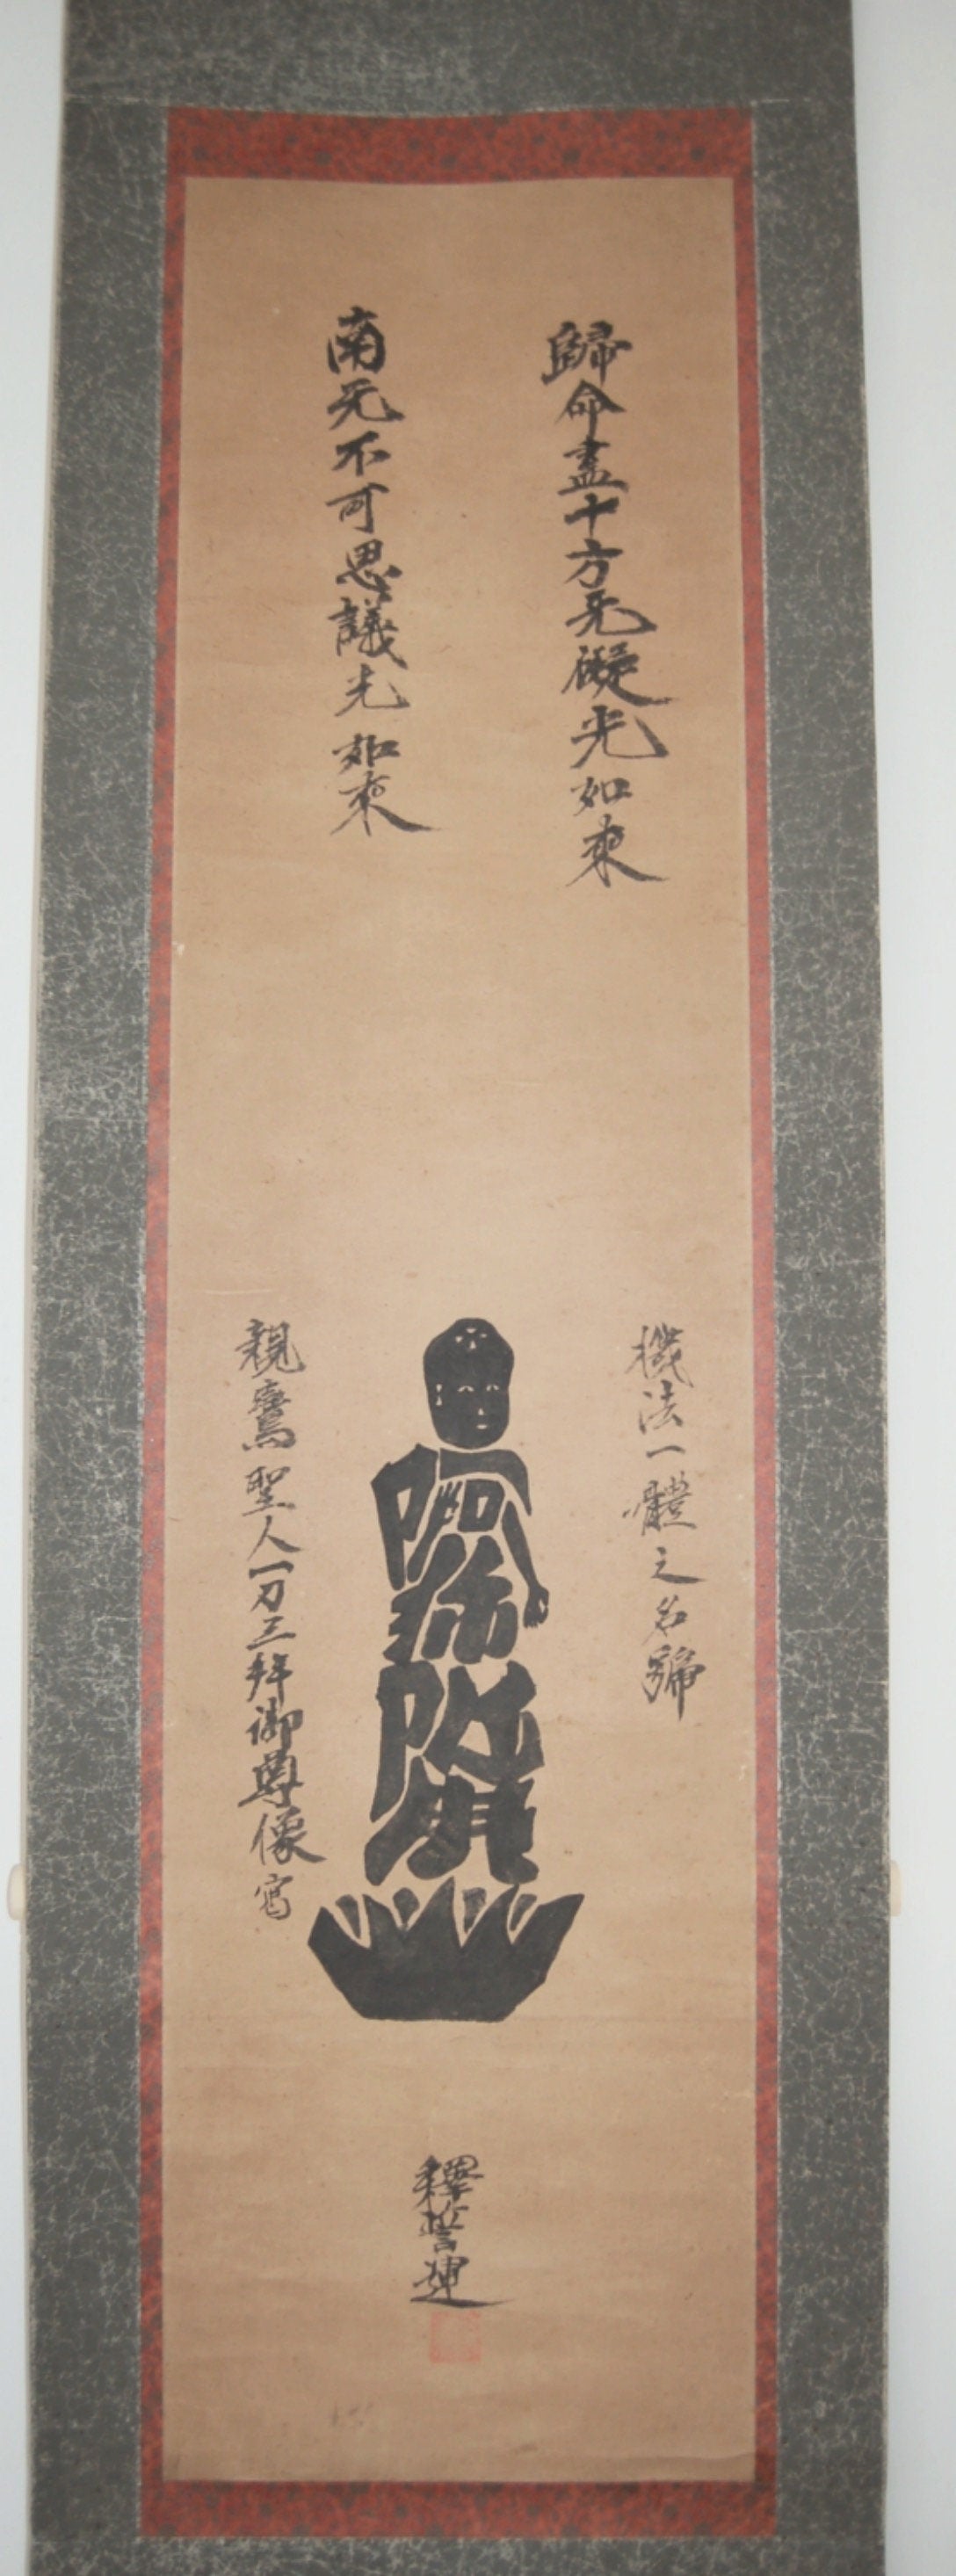 歸命盡十方无礙光如來
南无不可思議光如來
機法一體之名號
阿弥陀佛
親鸞聖人一刀三拜御尊像寫
釋誓運